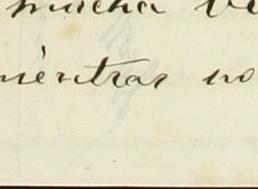 mucha
miéntras no